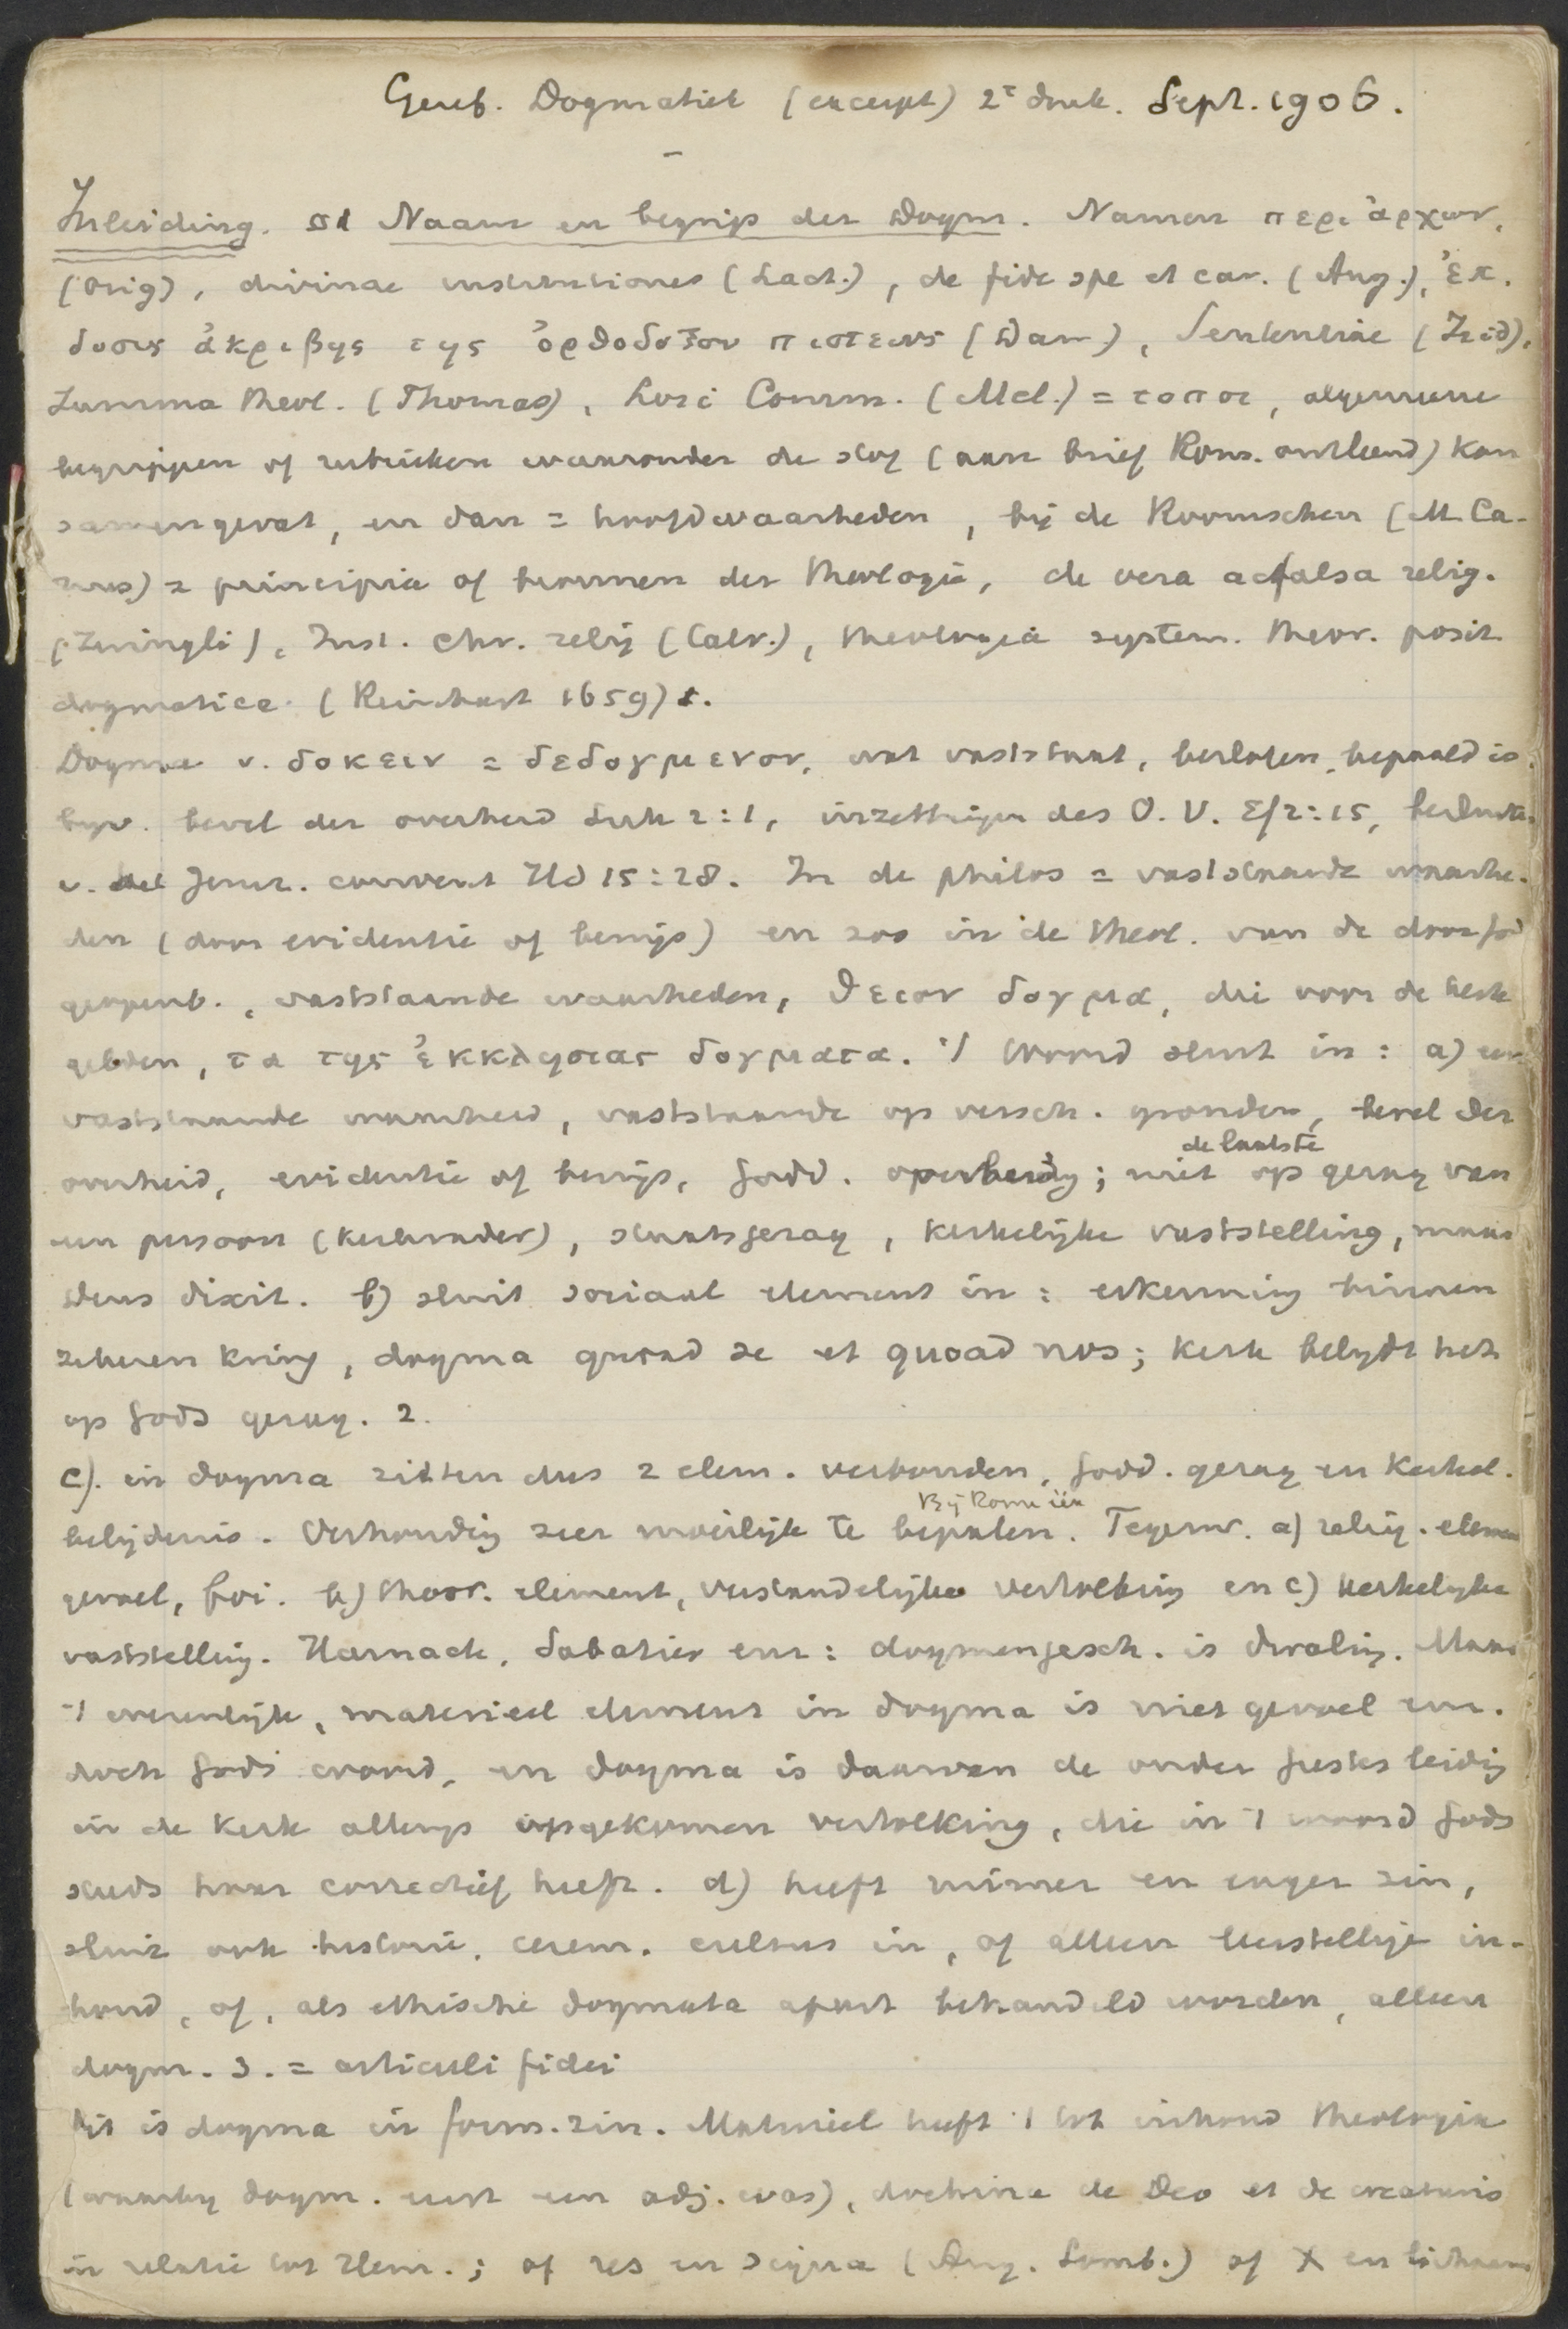 Geref. Dogmatiek (excerpt) 2e druk. Sept. 1906.
Inleiding. §1 Naam en begrip der Dogm. Namen περι ἀρχων,
(Orig), divinae institutiones (Lact.), de fide spe et car. (Aug.), ἐκ.
δοσις ἀκριβης της ὀρθοδοξου πιστεως (Dam), Sententiae (Isid),
Summa theol. (Thomas), Loci Comm. (Mel.) = τοποι, algemeene
begrippen of rubrieken waaronder de stof (aan brief Rom. ontleend) kan
samengevat, en dan = hoofdwaarheden, bij de Roomschen (M. Ca-
nus) = principia of bronnen der theologie, de vera ac falsa relig.
(Zwingli), Inst. chr. relig (Calv.), theologia system. theor. posit.
dogmatice (Reinhart 1659) 1.
Dogma v. δοκειν = δεδογμενον, wat vaststaat, besloten, bepaald is.
bijv. bevel der overheid Luk 2:1, inzettingen des O.V. Ef 2:15, besluiten
v. het Jeruz. convent Hd 15:28. In de philos = vaststaande waarhe-
den (door evidentie of bewijs) en zoo in de theol. van de door God
geopenb., vaststaande waarheden, θειον δογμα, die voor de kerk
gelden, τα της ἐκκλησιας δογματα. 't Woord sluit in: a) een
vaststaande waarheid, vaststaande op versch. gronden, bevel der
overheid, evidentie of bewijs, Godd. openbaring; de laatste niet op gezag van
een persoon (kerkvader), staatsgezag, kerkelijke vaststelling, maar
Deus dixit. b) sluit sociaal element in: erkenning binnen
zekeren kring, dogma quoad se et quoad nos; kerk belijdt het
op Gods gezag. 2.
c). in dogma zitten dus 2 elem. verbonden, Godd. gezag en kerkel.
belijdenis. Verhouding zeer moeilijk te bepalen. Bij Rome één Tegenw. a) relig. element
gevoel, foi. b) theor. element, verstandelijke vertolking en c) kerkelijke
vaststelling. Harnack, Sabatier enz: dogmengesch. is dwaling. Maar
't wezenlijk, materieel element in dogma is niet gevoel enz.
doch Gods woord, en dogma is daarvan de onder Geestes leiding
in de kerk allengs opgekomen vertolking, die in 't woord Gods
steeds haar correctief heeft. d) heeft ruimer en enger zin,
sluit ook historie, cerem. cultus in, of alleen leerstellige in-
houd, of, als ethische dogmata apart behandeld worden, alleen
dogm. 3. = articuli fidei
Dit is dogma in form. zin. Materieel heeft 't tot inhoud theologie
(waarbij dogm. eerst een adj. was), doctrina de Deo et de creaturis
in relatie tot Hem.; of res en signa (Aug. Lomb.) of X en lichaam